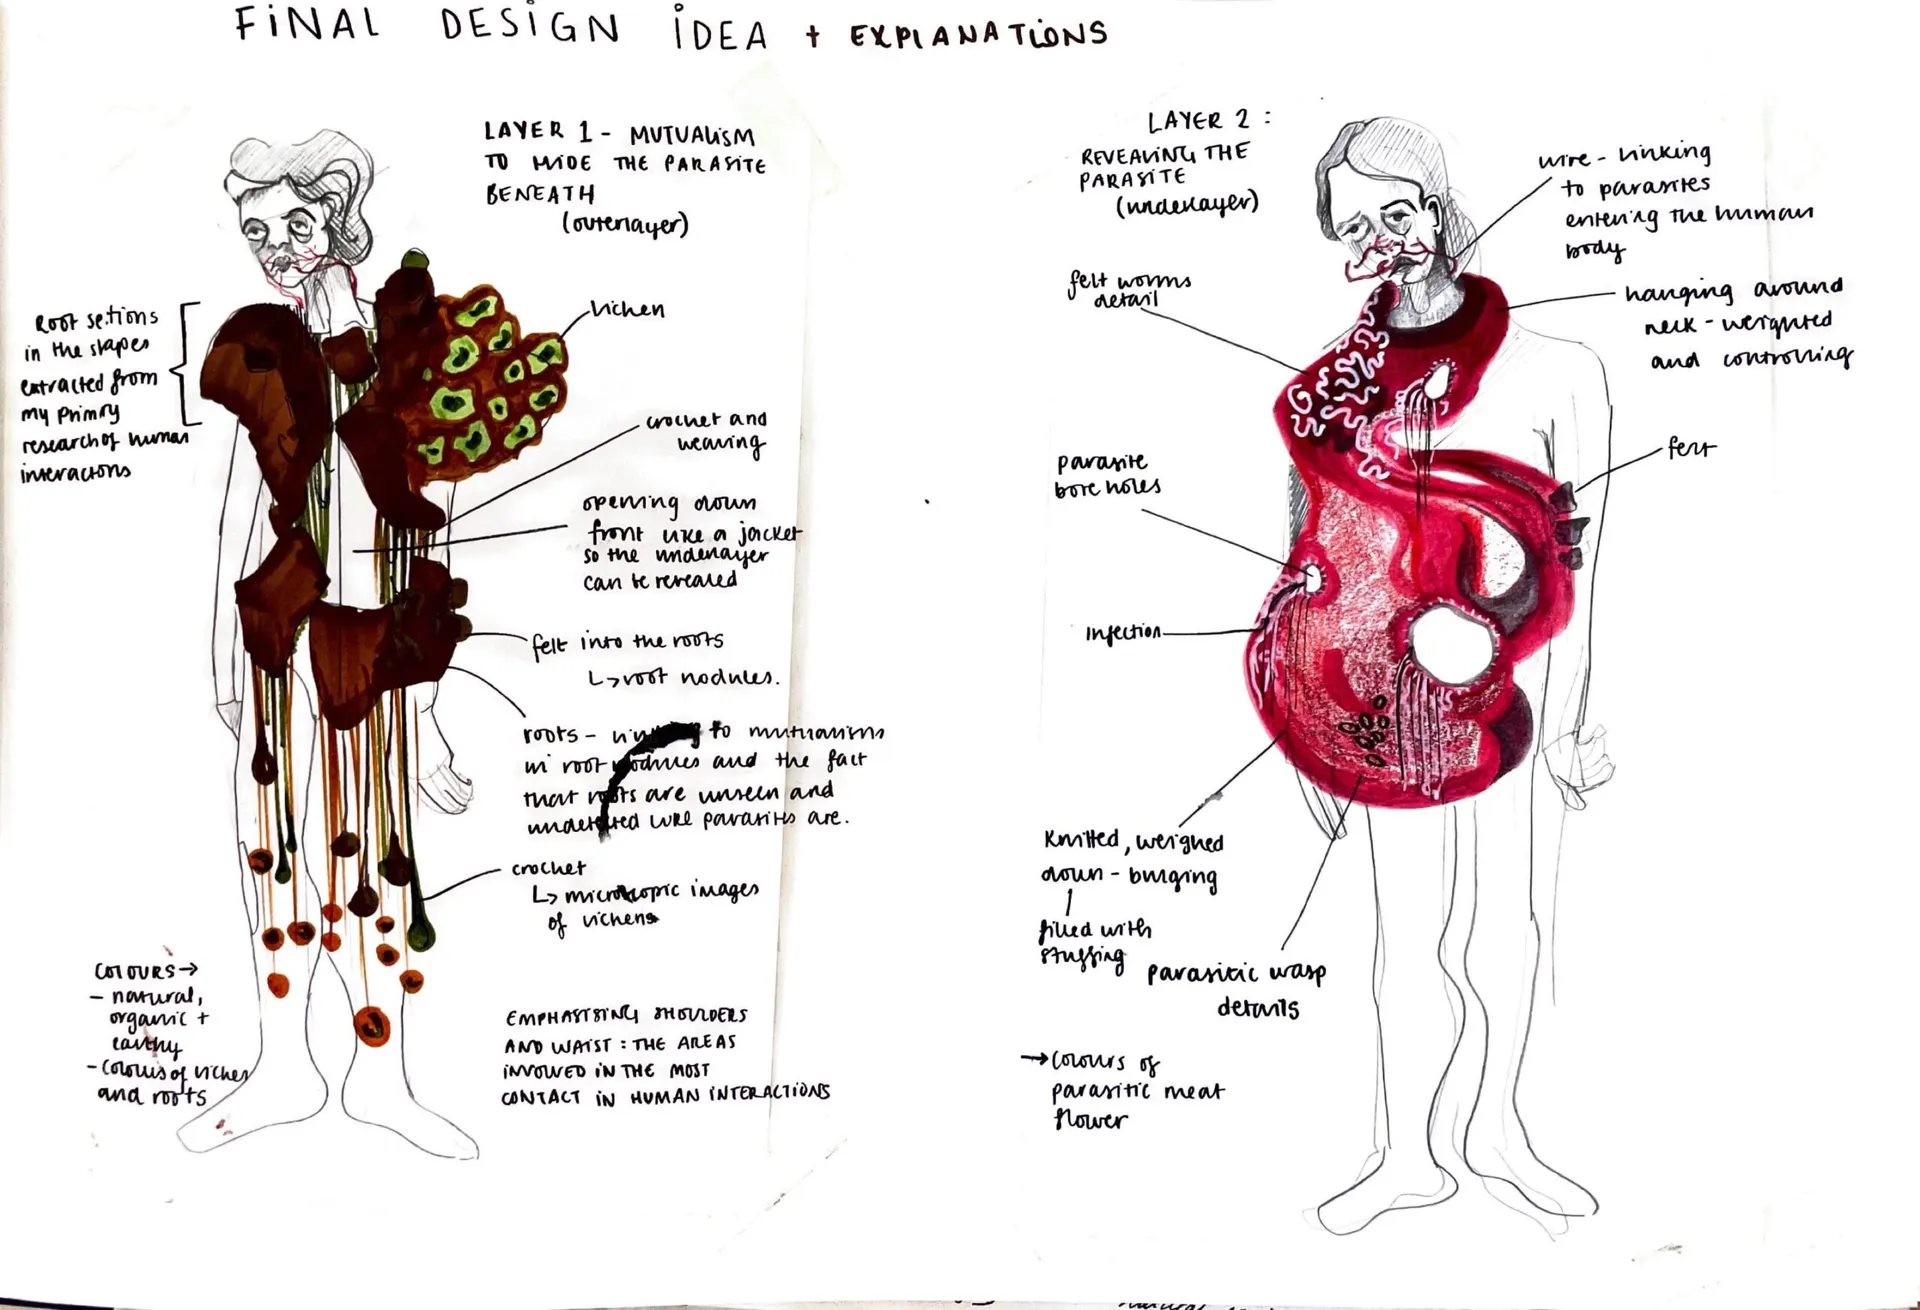 FINAL DESIGN IDEA + EXPLANATIONS
LAYER 1 - MUTUALISM
TO HIDE THE PARASITE
BENEATH
(outerlayer)
Root sections
in the shapes
extracted from
my primry
research of human
interactions
lichen
crochet and
weaving
opening down
front like a jacket
so the underlayer
can be revealed
felt into the roots
↳ root nodules.
roots - to mutualism
in root nodules and the fact
that roots are unseen and
undetected like parasites are.
crochet
↳ microscopic images
of lichens
COLOURS →
- natural,
organic +
earthy
- colours of lichen
and roots
EMPHASISING SHOULDERS
AND WAIST : THE AREAS
INVOLVED IN THE MOST
CONTACT IN HUMAN INTERACTIONS
LAYER 2 :
REVEALING THE
PARASITE
(underlayer)
wire - linking
to parasites
entering the human
body
felt worms
detail
hanging around
neck - weighted
and controlling
parasite
bore holes
felt
Infection
Knitted, weighed
down - bulging
filled with
stuffing
parasitic wasp
details
→ colours of
parasitic meat
flower